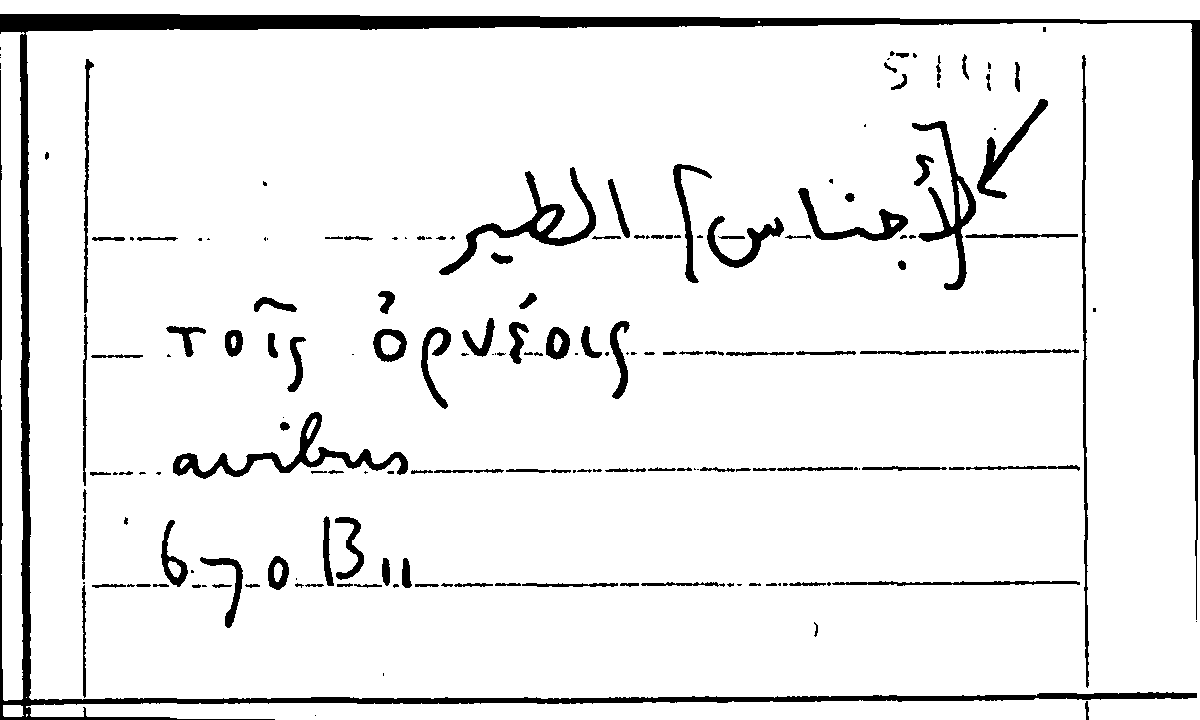 [لأجناس] الطير
τοῖς ὀρνέοις
avibus
670 B11